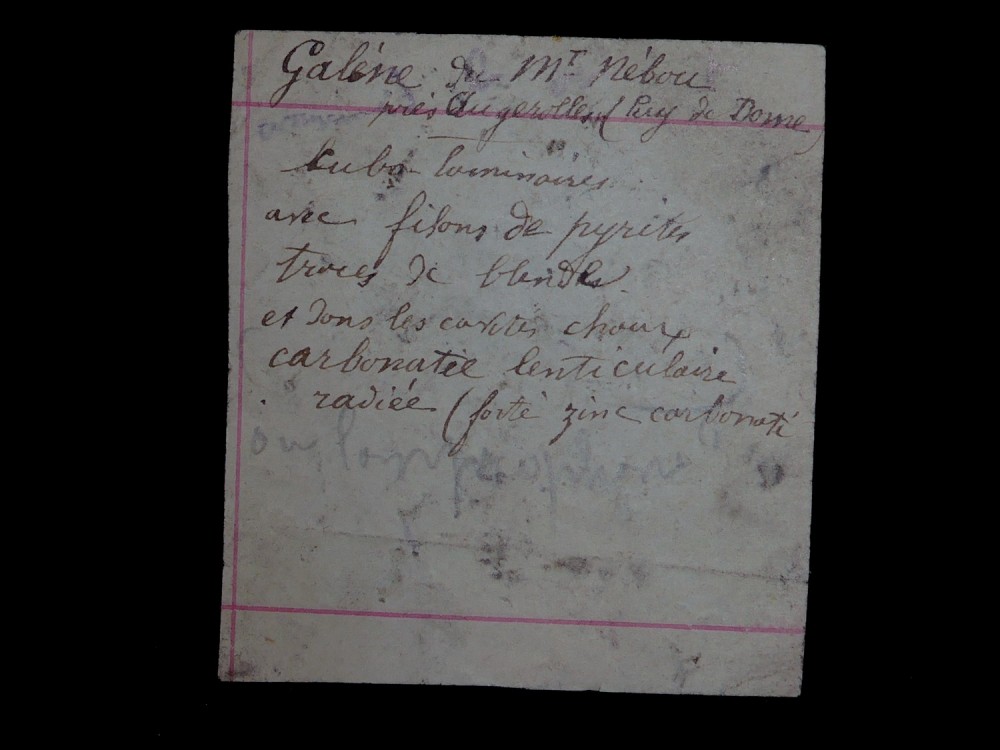 Galène du Mt Nébou
près Augerolles (Puy de Dome)
laminaires
avec filons de pyrites
traces de blende
et dans les cavités chaux
carbonatée lenticulaire
radiée (forte zinc carbonaté
ou